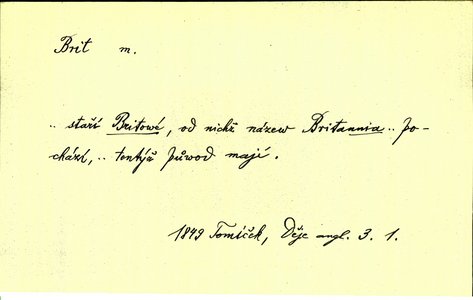 Brit m.
.. staří Britowé, od nichž názew Britannia .. po-
chází, .. tentýž půwod mají.
1849 Tomíček, Děje angl. 3. 1.